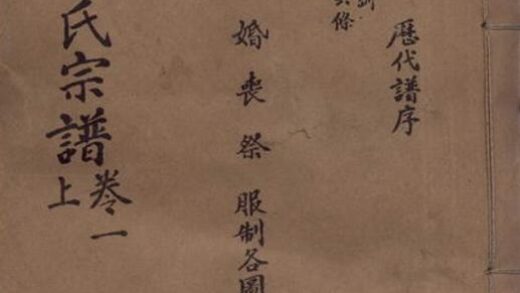 條
歷代譜序
婚喪祭服制各圖
氏宗譜卷一
上